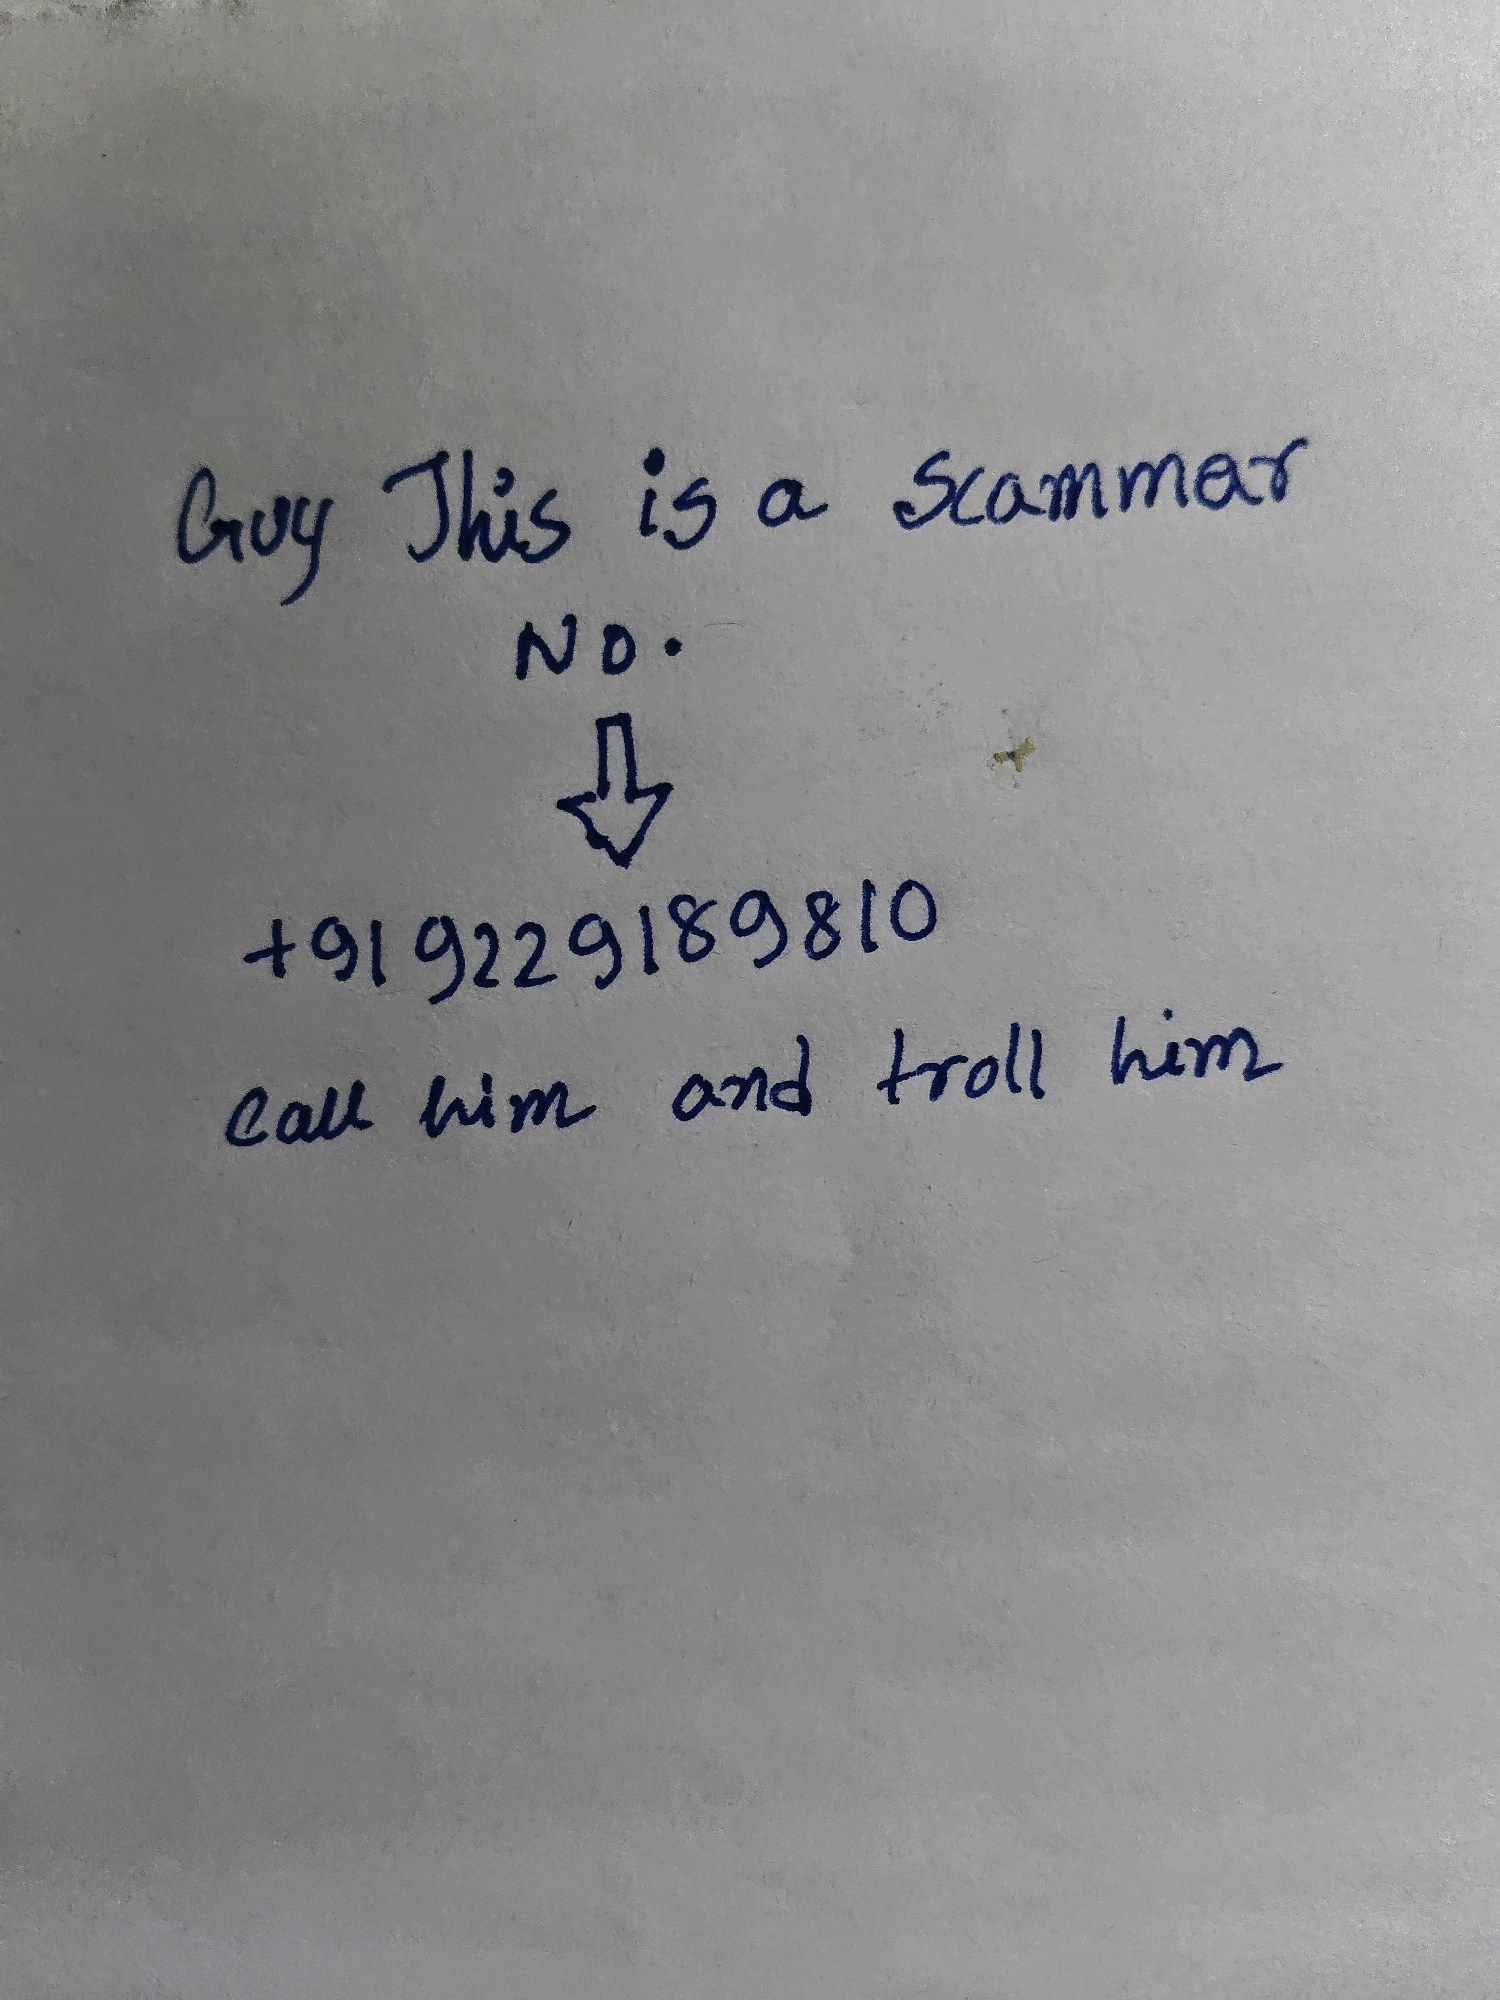 Guy This is a scammer
No.
+919229189810
Call him and troll him